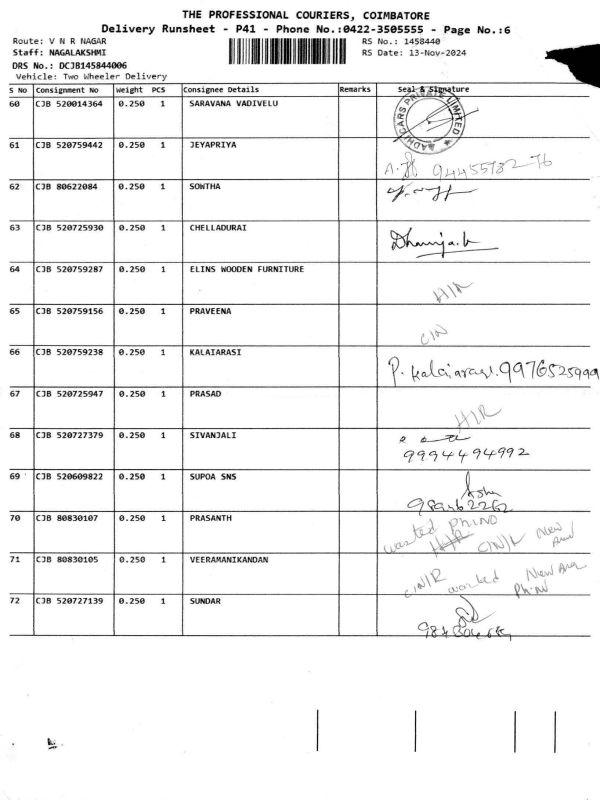 THE PROFESSIONAL COURIERS, COIMBATORE
Delivery Runsheet - P41 - Phone No.:0422-3505555 - Page No.:6
Route: V N R NAGAR RS No.: 1458440
Staff: NAGALAKSHMI RS Date: 13-Nov-2024
DRS No.: DCJB145844006
Vehicle: Two Wheeler Delivery
S No Consignment No Weight PCS Consignee Details Remarks Seal & Signature
60 CJB 520014364 0.250 1 SARAVANA VADIVELU
61 CJB 520759442 0.250 1 JEYAPRIYA
62 CJB 80622084 0.250 1 SOWTHA
63 CJB 520725930 0.250 1 CHELLADURAI
64 CJB 520759287 0.250 1 ELINS WOODEN FURNITURE
H/R
65 CJB 520759156 0.250 1 PRAVEENA
C/N
66 CJB 520759238 0.250 1 KALAIARASI
P. Kalaiarasi. 9976525999
67 CJB 520725947 0.250 1 PRASAD
H/R
68 CJB 520727379 0.250 1 SIVANJALI
9994494992
69 CJB 520609822 0.250 1 SUPOA SNS
70 CJB 80830107 0.250 1 PRASANTH
Ph:NO
New
71 CJB 80830105 0.250 1 VEERAMANIKANDAN
New Area
72 CJB 520727139 0.250 1 SUNDAR